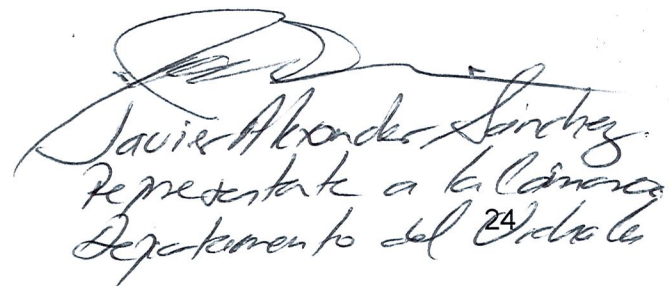 Javier Alexander Sánchez
Representante a la Cámara
Departamento del Vichada
24